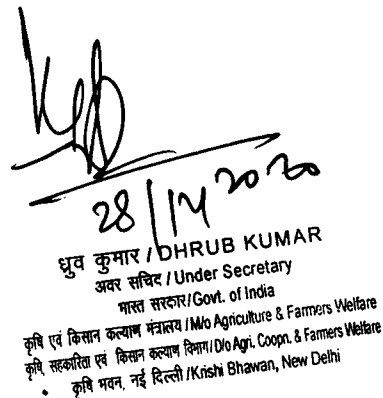 28/14 2020
ध्रुव कुमार / DHRUB KUMAR
अवर सचिव / Under Secretary
भारत सरकार/Govt. of India
कृषि एवं किसान कल्याण मंत्रालय / M/o Agriculture & Farmers Welfare
कृषि, सहकारिता एवं किसान कल्याण विभाग/ D/o Agri, Coopn. & Farmers Welfare
कृषि भवन, नई दिल्ली /Krishi Bhawan, New Delhi